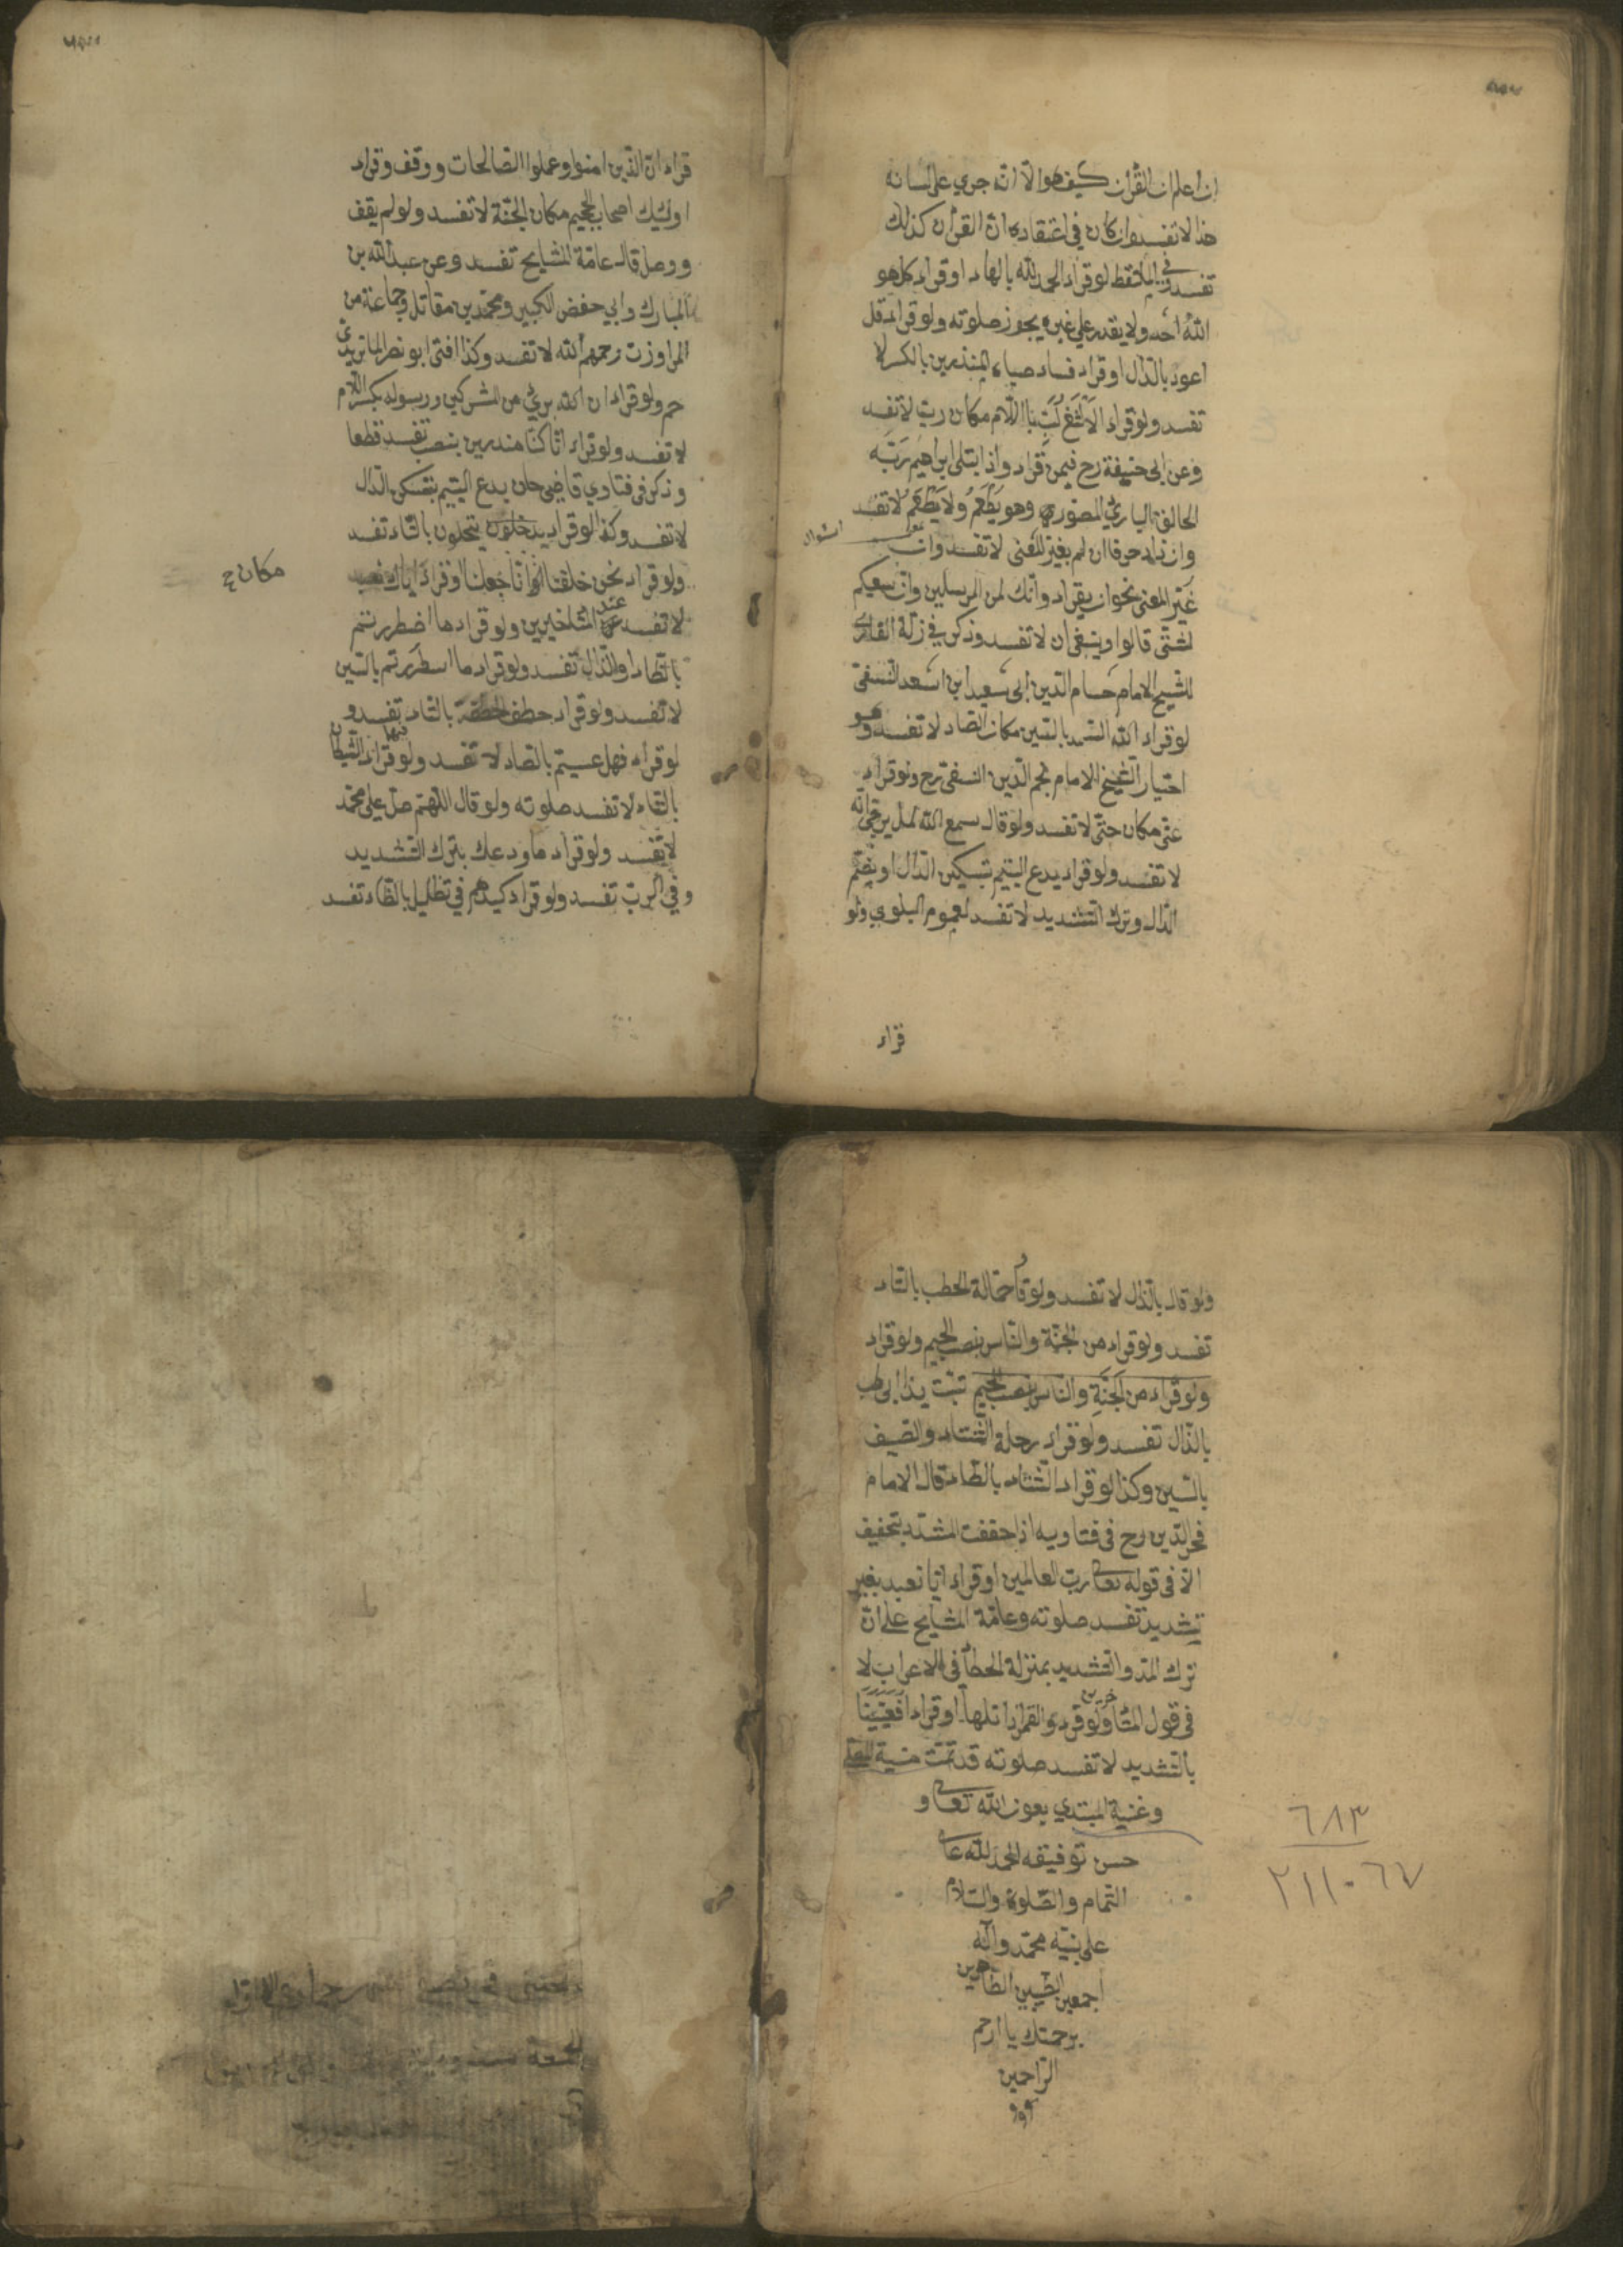 ان اعلم ان القرآن كيف هو الا انه جري على لسانه
هذا لا تفسد وان كان في اعتقاده ان القرآن كذلك
تفسد وفي الملتقط لو قراء الحمد لله بالهاء او قراء كل هو
الله احد ولا يقدر على غيره يجوز صلوته ولو قراء قل
اعوذ بالدال او قراء فساء صباء المنذرين بالكسر لا
تفسد ولو قراء الالثغ لب بنا اللام مكان رب لا تفسد
وعن ابى حنيفة رح فيمن قراء واذ ابتلى ابراهيم ربه
الخالق الباري المصور وهو يطعم ولا يطعم لا تفسد
وان زاد حرفا ان لم يغير المعنى لا تفسد وان
غير المعنى نحو ان يقراء وانك لمن المرسلين وان سعيكم
لشتى قالوا وينبغى ان لا تفسد وذكر في زلة القارى
للشيخ الامام حسام الدين ابى سعيد ابن اسعد النسفى
لو قراء الله السمد بالسين مكان الصاد لا تفسد وهو
اختيار الشيخ الامام نجم الدين النسفى رح ولو قراء
عتى مكان حتى لا تفسد ولو قال سمع الله لمل يرجى انه
لا تفسد ولو قراء يدع اليتيم بتسكين الدال او بضم
الدال وترك التشديد لا تفسد لعموم البلوي ولو
قراء
قراء ان الذين امنوا وعملوا الصالحات ووقف وقراء
اولئك اصحاب الجحيم مكان الجنة لا تفسد ولو لم يقف
ووصل قال عامة المشايخ تفسد وعن عبد الله بن
المبارك وابي حفص الكبير ومحمد بن مقاتل وجماعة من
المراوزت رحمهم الله لا تفسد وكذا افتى ابو نصر الماتريدي
حم ولو قراء ان الله بريئ من المشركين ورسوله بكسر اللام
لا تفسد ولو قراء انا كنا منذرين بنصب تفسد قطعا
وذكر فى فتاوي قاضى خان يدع اليتيم بتسكين الدال
لا تفسد وكذا لو قراء يدخلون يتخلون بالتاء تفسد
ولو قراء نحن خلقنا انا جعلنا او قراء اياك نعبد
مكان ح
لا تفسد عند المتأخرين ولو قراء ما اضطررتم
بالظاء او الذال تفسد ولو قراء ما اسطررتم بالسين
لا تفسد ولو قراء خطف الخطفة بالتاء تفسد و
لو قراء فهل عسيتم بالصاد لا تفسد ولو قراء فيها الشيطان
بالتاء لا تفسد صلوته ولو قال اللهم صل على محمد
لا تفسد ولو قراء ما ودعك بترك التشديد
وفي الرب تفسد ولو قراء كيدهم في تظليل بالظاء تفسد
ولو قال بالذال لا تفسد ولو قرأ حمالة الحطب بالتاء
تفسد ولو قراء من الجنة والناس بنصب الجيم ولو قراء
ولو قراء من الجنة والناس بنصب الجيم تبت يذا ابى لهب
بالذال تفسد ولو قراء رحلة الشتاء والصيف
بالسين وكذا لو قراء الشتاء بالطاء قال الامام
فخر الدين رح فى فتاويه اذا خففت المشدد بتخفيف
الا فى قوله تعالى رب العالمين او قراء ايا نعبد بغير
تشديد تفسد صلوته وعامة المشايخ على ان
ترك المد والتشديد بمنزلة الخطأ فى الاعراب لا
فى قول المتأخرين ولو قراء والقمر اذا تلها او قراء افعيينا
بالتشديد لا تفسد صلوته قد تمت منية المصلى
وغنية المبتدي بعون الله تعالى و
حسن توفيقه الحمد لله على
التمام والصلوة والسلام
على نبيه محمد وآله
اجمعين الطيبين الطاهرين
برحمتك يا ارحم
الراحمين
٦٨٣
٢١١٠٦٧